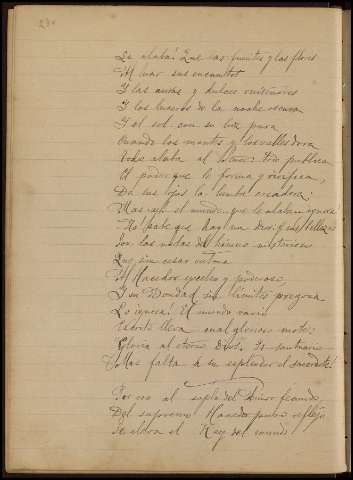 Le alaba! Que las fuentes y las flores
Al mar sus encantos
Y las auras y dulces ruiseñores
Y los luceros de la noche oscura
Y el sol con su luz pura
Cuando los montes y los valles dora
Todo alaba al Eterno: todo publica
El poder que le forma y
De sus hijos la turba creadora;
Mas ¡ay! el mundo que le alaba ignora!
No sabe que hay un Dios: que sus bellezas
Son las notas del himno misterioso
Que sin cesar entona
Al Hacedor excelso y poderoso,
Y su Bondad sin límites pregona
Lo ignora! El mundo vario
Escrito lleva cual glorioso mote:
Gloria al eterno Dios. Es santuario
Mas falta a su esplendor el sacerdote!
Por eso al soplo del Amor fecundo,
Del supremo Hacedor puro reflejo,
Se eleva el Rey del mundo